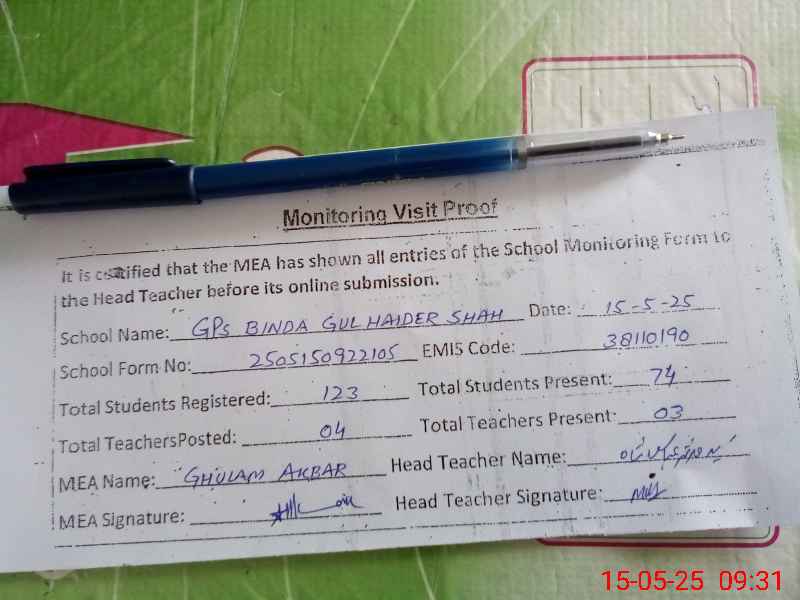 Monitoring Visit Proof
It is certified that the MEA has shown all entries of the School Monitoring Form to
the Head Teacher before its online submission.
School Name: GPS BINDA GUL HAIDER SHAH Date: 15-5-25
School Form No: 2505150922105 EMIS Code: 38110190
Total Students Registered: 123 Total Students Present: 74
Total TeachersPosted: 04 Total Teachers Present: 03
MEA Name: GHULAM AKBAR Head Teacher Name:
MEA Signature: Head Teacher Signature:
15-05-25 09:31